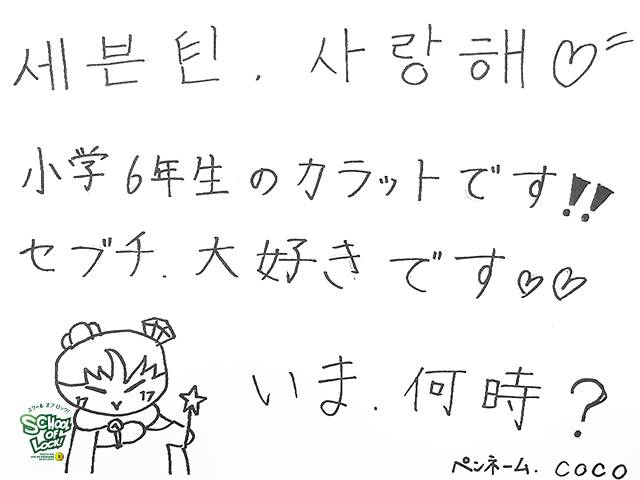 세븐틴. 사랑해♡
小学6年生のカラットです!!
セブチ.大好きです♡♡
いま.何時?
17 17
スクール オブ ロック!
SCHOOL OF LOCK!
ペンネーム. COCO